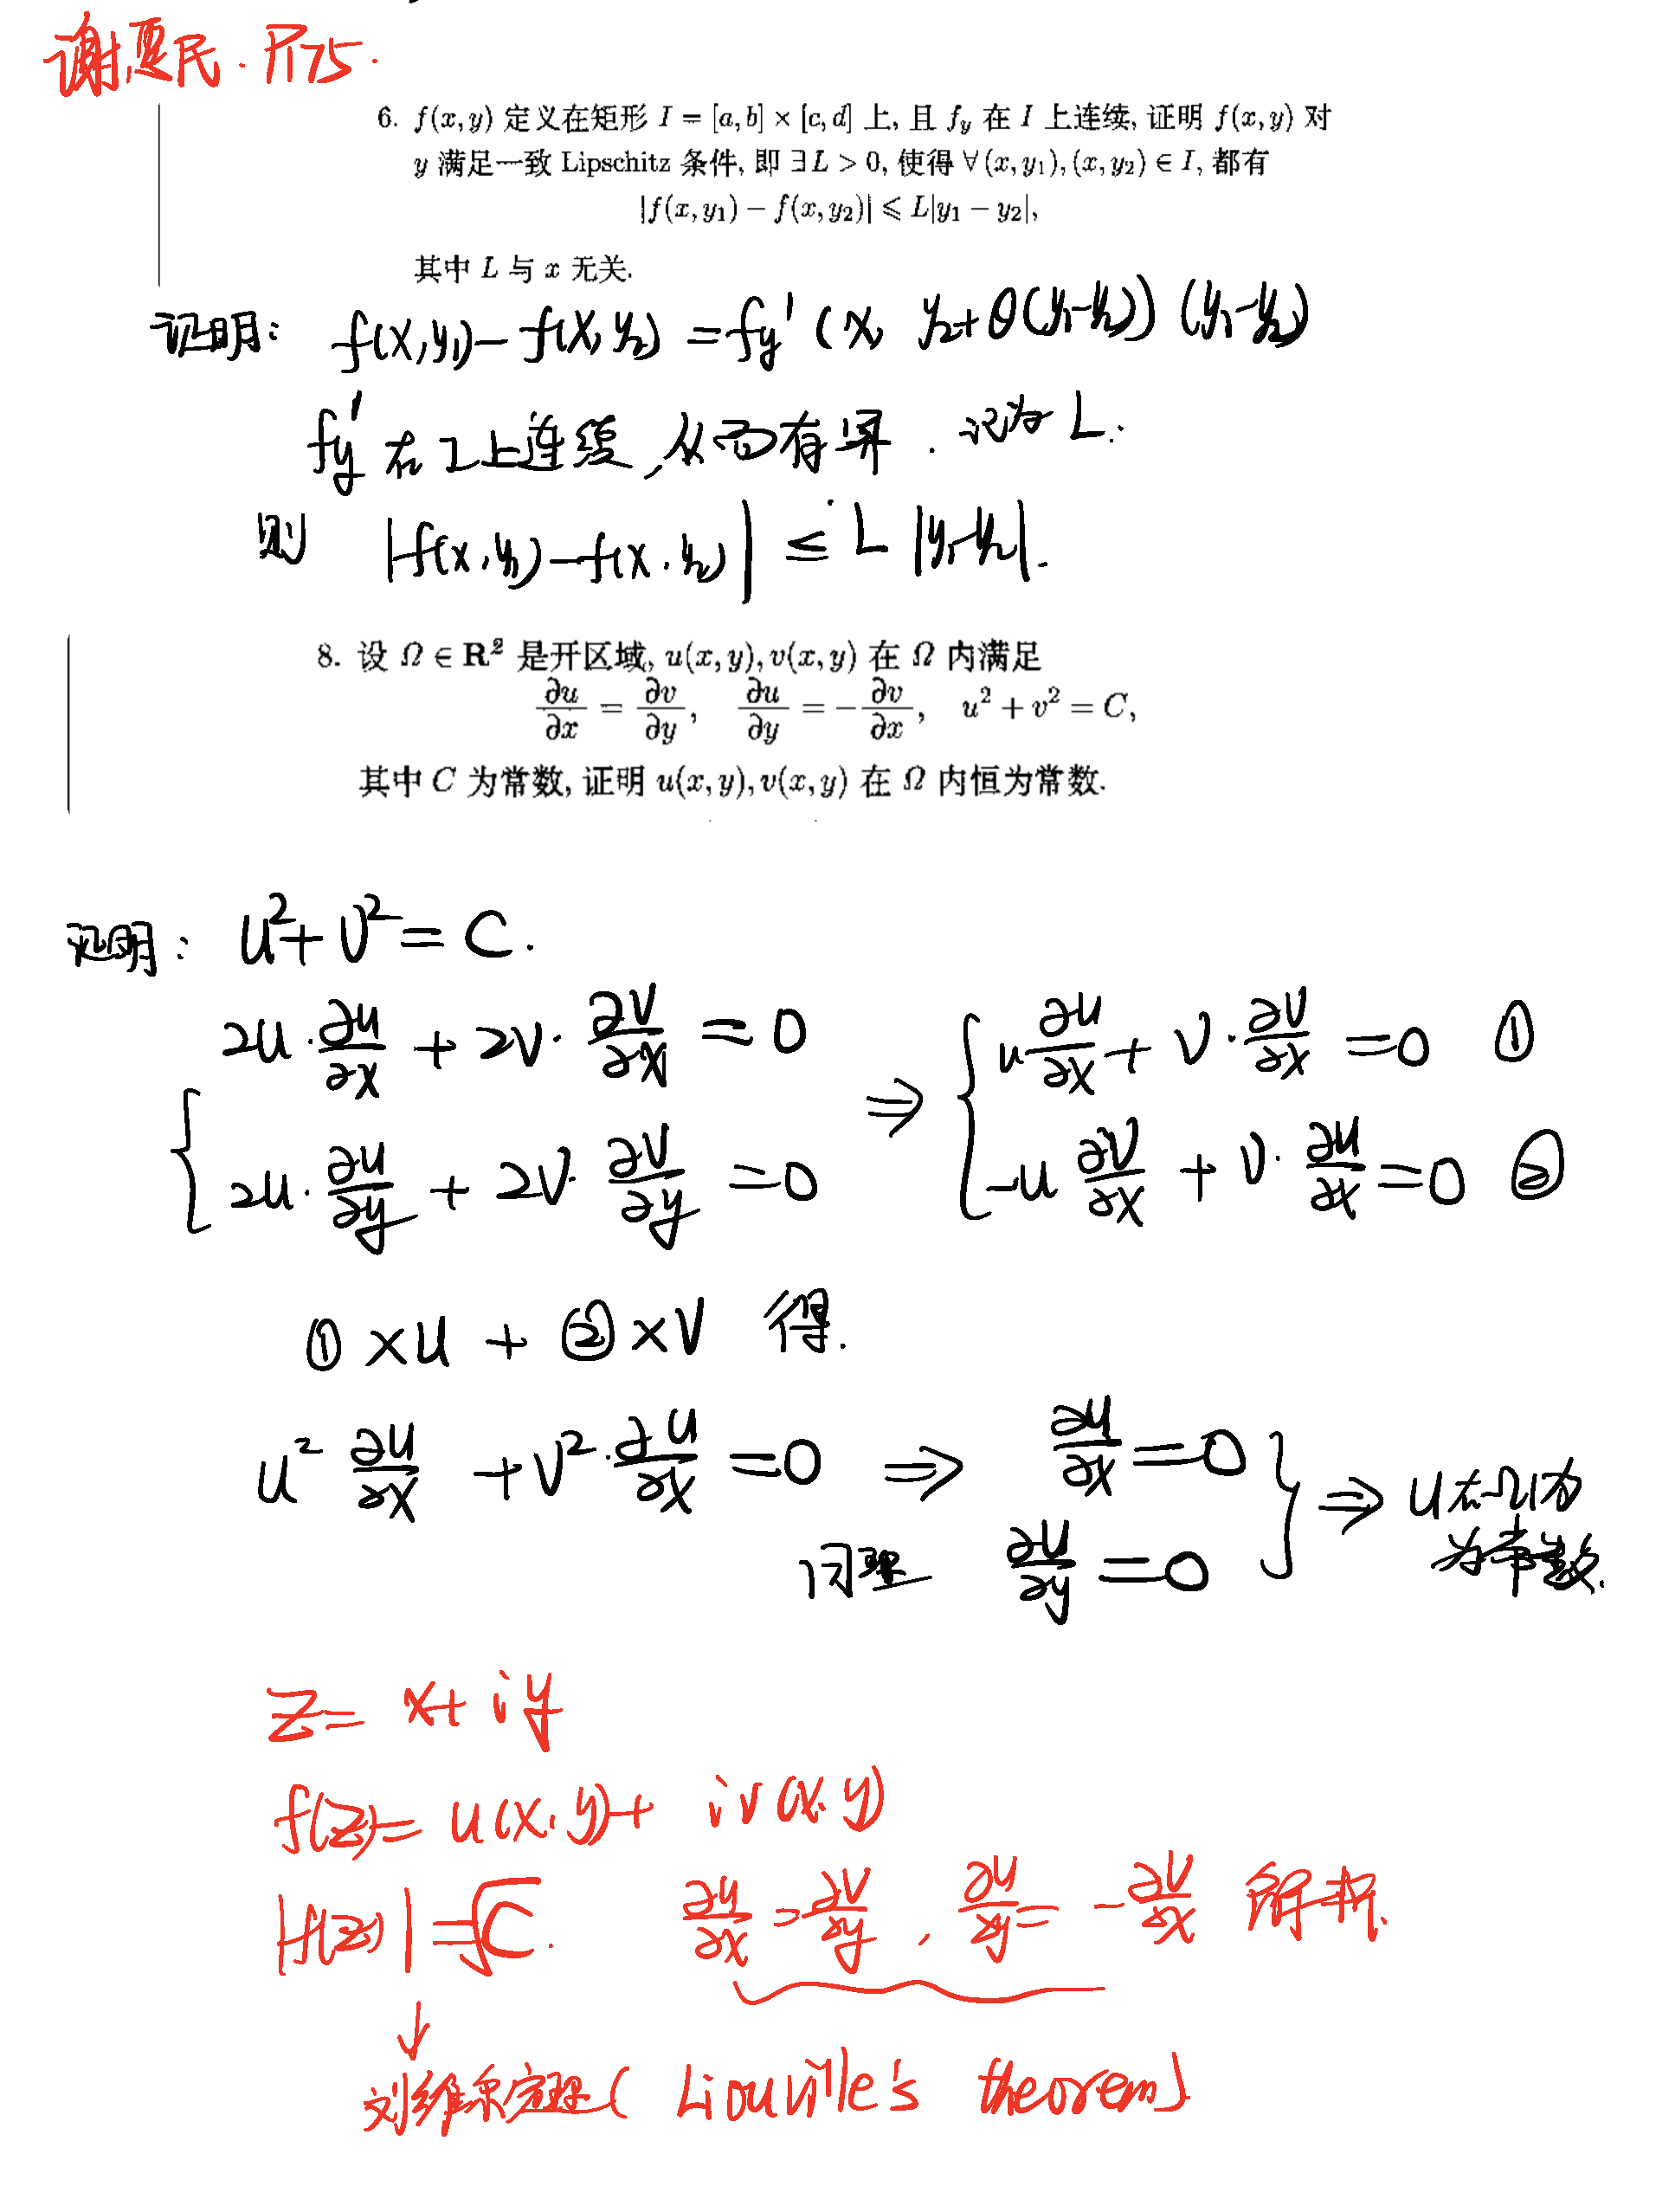 谢惠民. P175.
6. f(x,y) 定义在矩形 I = [a,b] × [c,d] 上, 且 f_y 在 I 上连续, 证明 f(x,y) 对
y 满足一致 Lipschitz 条件, 即 ∃L > 0, 使得 ∀(x,y₁),(x,y₂) ∈ I, 都有
|f(x,y₁) − f(x,y₂)| ⩽ L|y₁ − y₂|,
其中 L 与 x 无关.
证明: f(x,y₁) − f(x,y₂) = f_y'(x, y₂+θ(y₁−y₂))(y₁−y₂)
f_y' 在 I 上连续, 从而有界. 记为 L.
则 |f(x,y₁) − f(x,y₂)| ≤ L|y₁−y₂|.
8. 设 Ω ∈ R² 是开区域, u(x,y), v(x,y) 在 Ω 内满足
∂u/∂x = ∂v/∂y, ∂u/∂y = −∂v/∂x, u² + v² = C,
其中 C 为常数, 证明 u(x,y), v(x,y) 在 Ω 内恒为常数.
证明: u²+v² = C.
{ 2u·∂u/∂x + 2v·∂v/∂x = 0 ⇒ { u∂u/∂x + v·∂v/∂x = 0 ①
2u·∂u/∂y + 2v·∂v/∂y = 0 −u∂v/∂x + v·∂u/∂x = 0 ②
①×u + ②×v 得.
u²∂u/∂x + v²·∂u/∂x = 0 ⇒ ∂u/∂x = 0 } ⇒ u在Ω内
同理 ∂u/∂y = 0 为常数.
z = x+iy
f(z) = u(x,y) + iv(x,y)
|f(z)| = √C. ∂u/∂x = ∂v/∂y, ∂u/∂y = −∂v/∂x 解析.
↓
刘维尔定理 (Liouville's theorem)